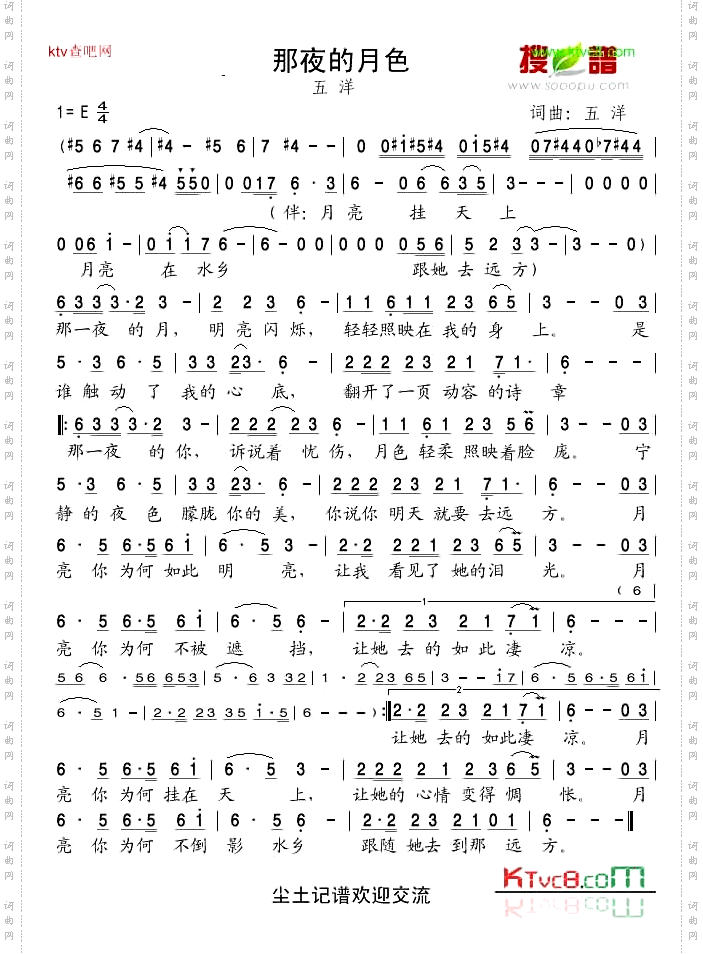 ktv查吧网
那夜的月色
搜谱
www.ktvc8.com
www.sooopu.com
五洋
1= E 4/4
词曲：五洋
(#5 6 7 #4 | #4 - #5 6 | 7 - - - | 0 0#i#5#4 0i5#4 | 07#440♭7#44 |
#66 #55 #4 550 | 0 017 6 · 3 | 6 - 06 635 | 3 - - - | 0 0 0 0
(伴：月亮 挂天上
0 06 i - | 0i i76 | 6 - 0 0 | 0 0 0 056 | 5 2 33 | 3 - - 0)
月亮 在水乡 跟她去远方)
6333 3·2 3 - | 2 22 023· 6 - | 11 611 23 65 | 3 - - 03 |
那一夜 的月， 明亮闪烁， 轻轻照映在我的身上。 是
5 · 3 6 · 5 | 33 23· 6 - | 222 223 21 71· | 6 - - -
谁触动了我的心底， 翻开了一页动容的诗章
6333 3·2 3 - | 222 223 6 - | 11 61 223 56 | 3 - - 03 |
那一夜 的你， 诉说着 忧伤， 月色轻柔照映着脸庞。 宁
5 · 3 6 · 5 | 333 23· 6 - | 222 23 221 71· | 6 - - 03 |
静的夜色朦胧你的美， 你说你明天就要去远方。 月
6 · 5 6·5 6i | 6 · 5 3 - | 2·2 223 23 65 | 5 - - 03 |
亮你为何如此明亮， 让我看见了她的泪光。 月
( 6 |
6 · 5 6·5 6i | 6 · 5 3 - | 2·2 23 21 71 | 6 - - -
1
亮你为何不被遮挡， 让她去的如此凄凉。
56 6 ·56 6653 | 5 · 6 3 32 | 1 · 2 23 65 | 3 - - i7 | 6 · 5 6·5 6i |
6 · 5 1 - | 2·2 235 35 i·5 | 6 - - -) :| 2·2 23 2171 | 6 - - 03 |
2
让她去的如此凄凉。 月
6 · 5 6·5 6i | 6 · 5 3 - | 222 23 21 365 | 3 - - 03 |
亮你为何挂在天上， 让她的心情变得惆怅。 月
6 · 5 6·5 6i | 6 · 5 3 - | 2·2 23 2101 | 6 - - - ‖
亮你为何不倒影水乡 跟随她去到那远方。
尘土记谱欢迎交流
KTvc8.com